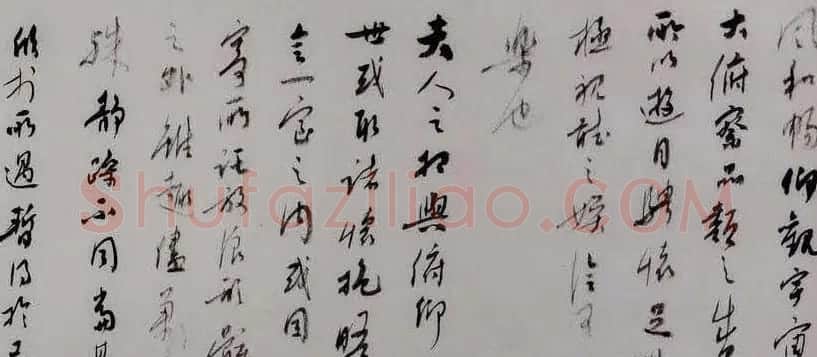 風和暢仰觀宇宙
大俯察品類之
所以遊目騁懷足
極視聽之娛信可
樂也
夫人之相與俯仰
世或取諸懷抱晤
言一室之內或因
寄所託放浪形
之外雖趣
殊靜躁不同當其
欣於所遇暫得於
Shufaziliao.COM